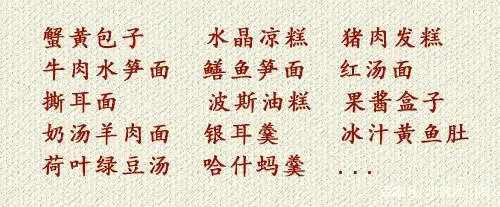 蟹黄包子 水晶凉糕 猪肉发糕
牛肉水笋面 鳝鱼笋面 红汤面
撕耳面 波斯油糕 果酱盒子
奶汤羊肉面 银耳羹 冰汁黄鱼肚
荷叶绿豆汤 哈什蚂羹 ...